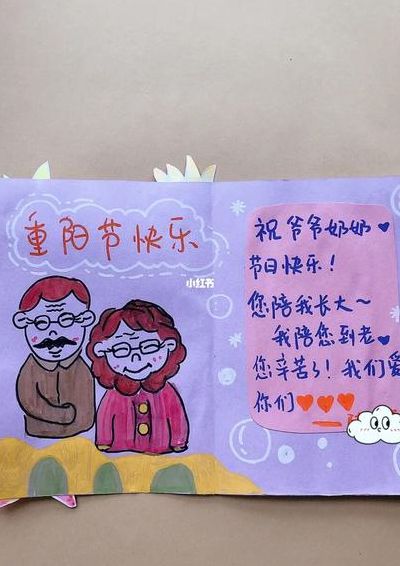 重阳节快乐
小红书
祝爷爷奶奶
节日快乐！
您陪我长大～
我陪您到老
您辛苦了！我们爱
你们